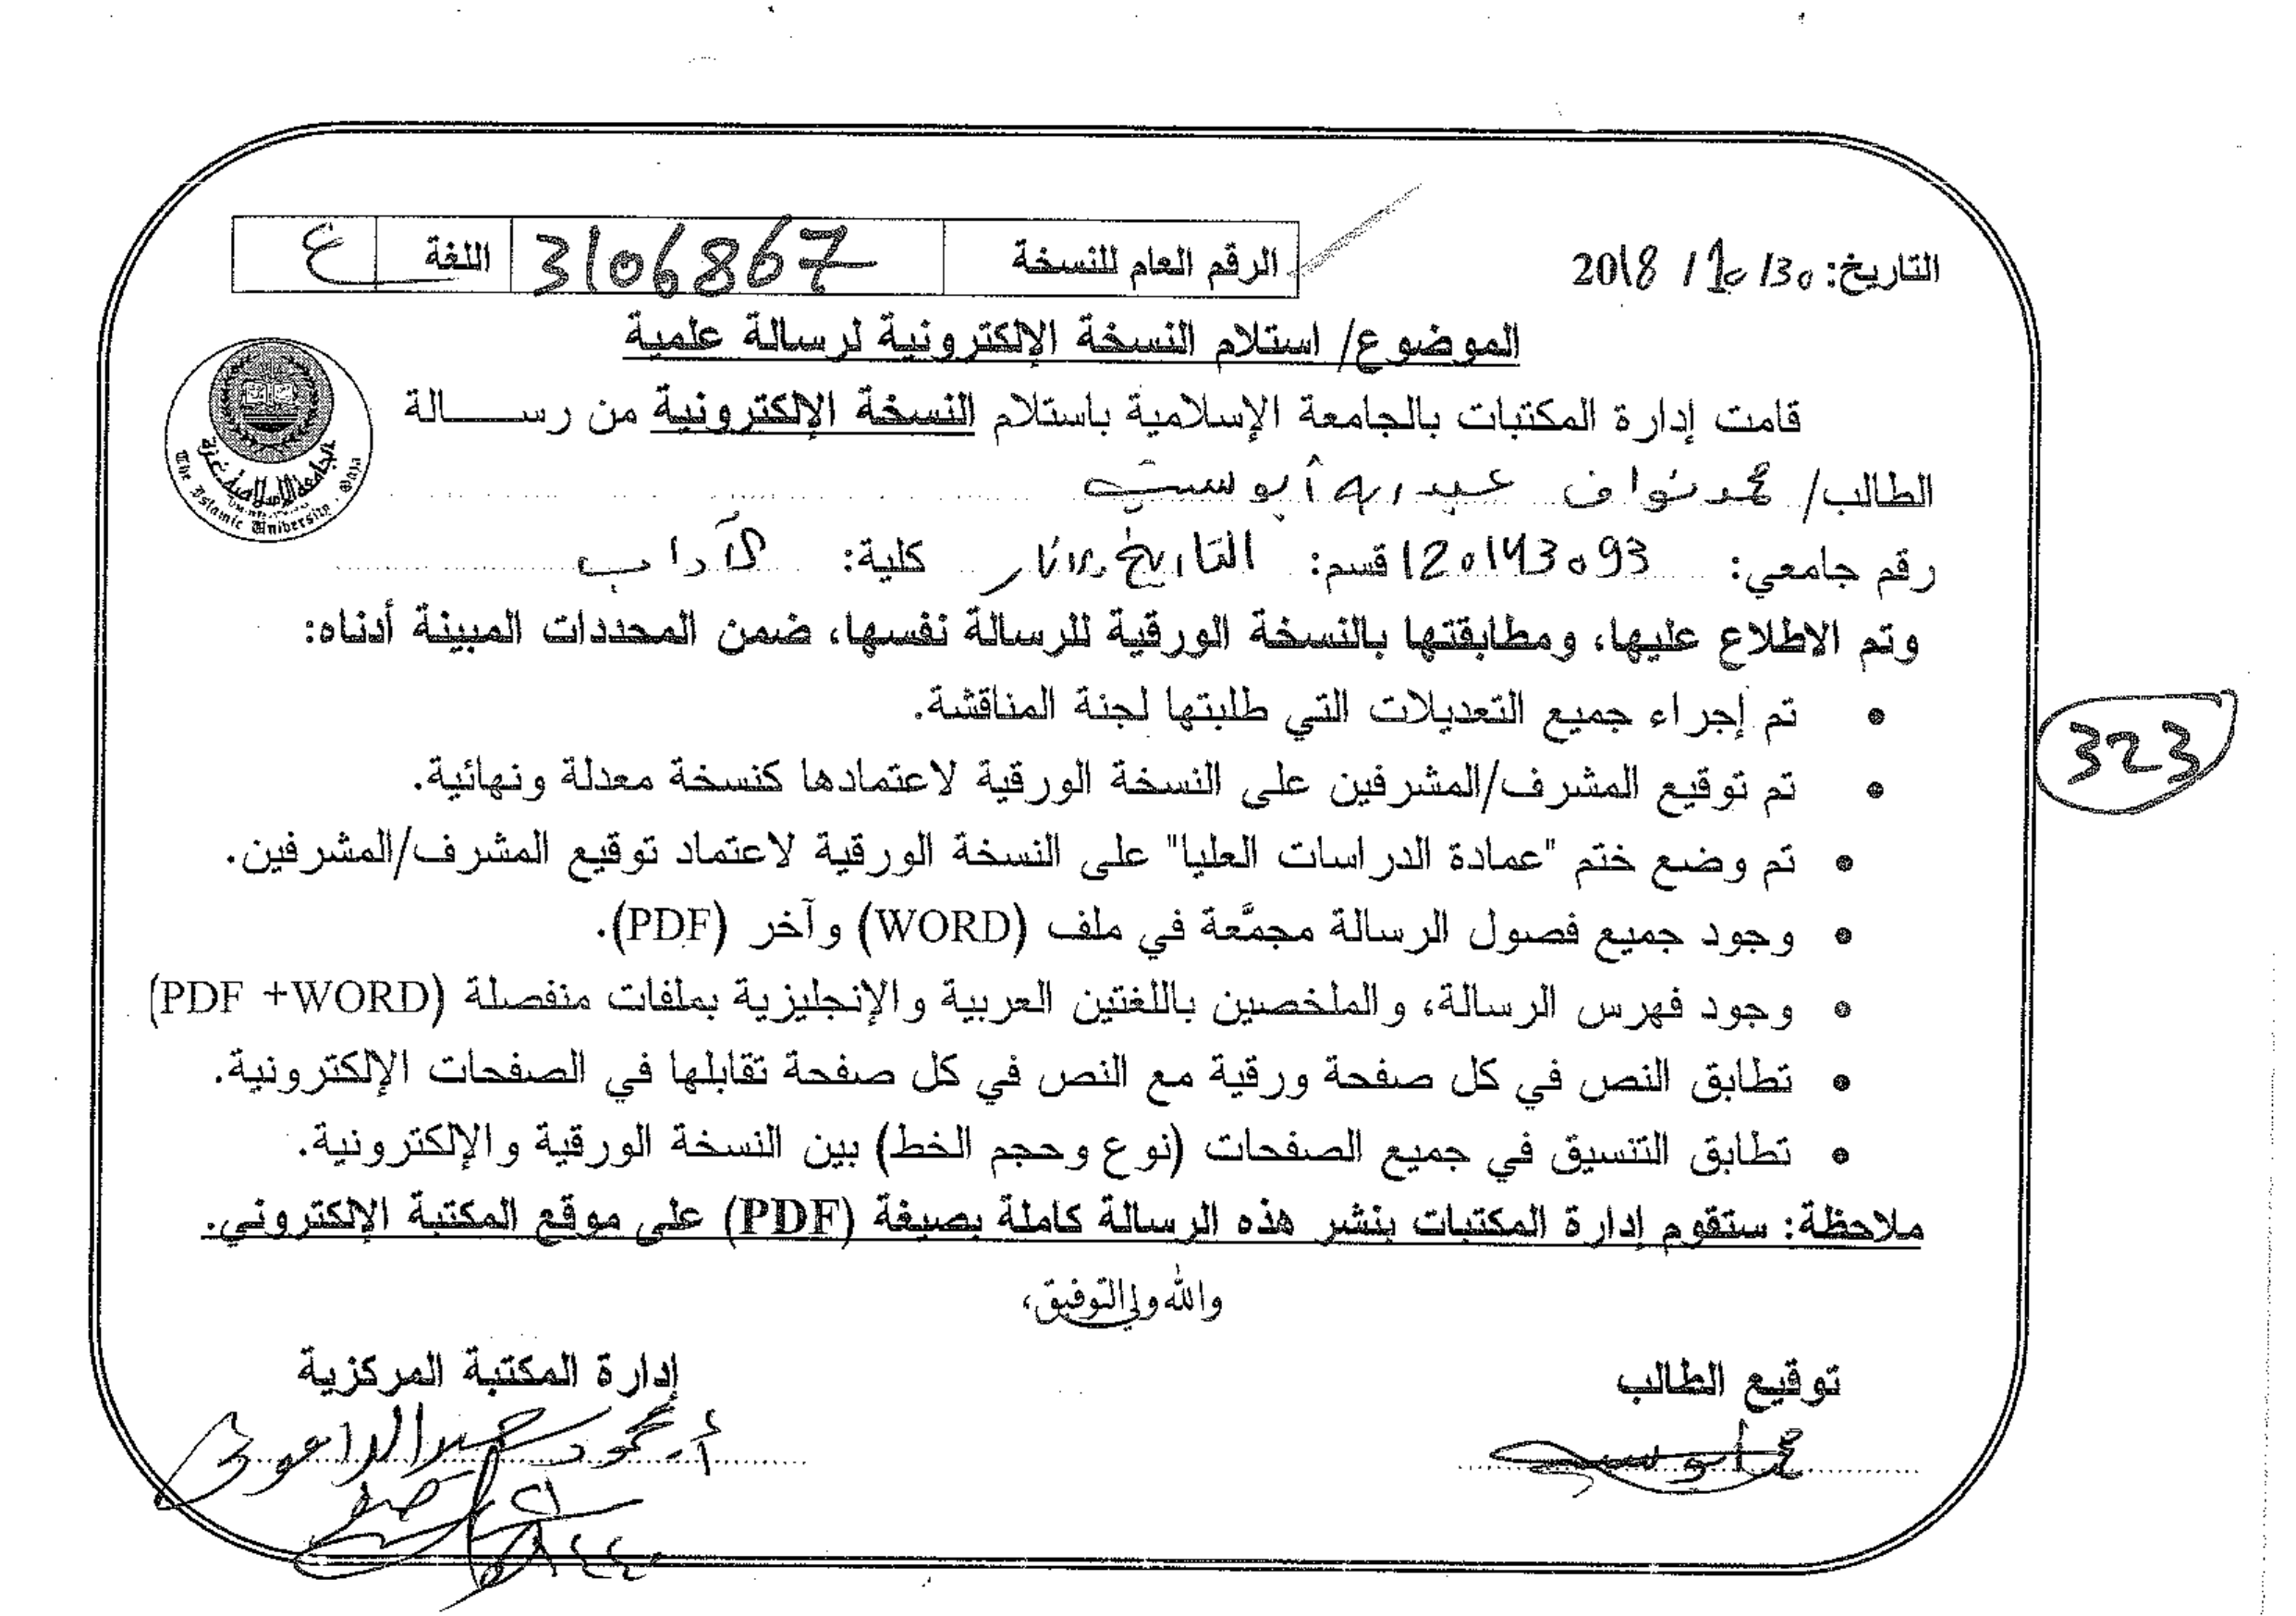 التاريخ: 30/ 10/ 2018
الرقم العام للنسخة 3106867 اللغة ع
الموضوع/ استلام النسخة الإلكترونية لرسالة علمية
قامت إدارة المكتبات بالجامعة الإسلامية باستلام النسخة الإلكترونية من رســـــالة
الطالب/ محمد نواف عبد ربه أبو سبت
رقم جامعي: 120143093 قسم: التاريخ والآثار كلية: الآداب
وتم الاطلاع عليها، ومطابقتها بالنسخة الورقية للرسالة نفسها، ضمن المحددات المبينة أدناه:
• تم إجراء جميع التعديلات التي طلبتها لجنة المناقشة.
323
• تم توقيع المشرف/المشرفين على النسخة الورقية لاعتمادها كنسخة معدلة ونهائية.
• تم وضع ختم "عمادة الدراسات العليا" على النسخة الورقية لاعتماد توقيع المشرف/المشرفين.
• وجود جميع فصول الرسالة مجمَّعة في ملف (WORD) وآخر (PDF).
• وجود فهرس الرسالة، والملخصين باللغتين العربية والإنجليزية بملفات منفصلة (PDF +WORD)
• تطابق النص في كل صفحة ورقية مع النص في كل صفحة تقابلها في الصفحات الإلكترونية.
• تطابق التنسيق في جميع الصفحات (نوع وحجم الخط) بين النسخة الورقية والإلكترونية.
ملاحظة: ستقوم إدارة المكتبات بنشر هذه الرسالة كاملة بصيغة (PDF) على موقع المكتبة الإلكتروني.
والله ولي التوفيق،
توقيع الطالب
إدارة المكتبة المركزية
الجامعة الإسلامية غزة
The Islamic University, Gaza